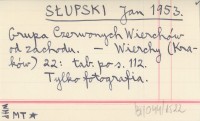 SŁUPSKI Jan 1953.
Grupa Czerwonych Wierchów
od zachodu. — Wierchy (Kra-
ków) 22: tab. po s. 112.
Tylko fotografia.
MT ★